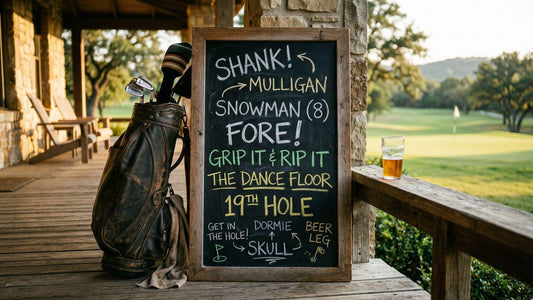 SHANK!
MULLIGAN
SNOWMAN (8)
FORE!
GRIP IT & RIP IT
THE DANCE FLOOR
19TH HOLE
GET IN THE HOLE!
DORMIE
BEER LEG
SKULL